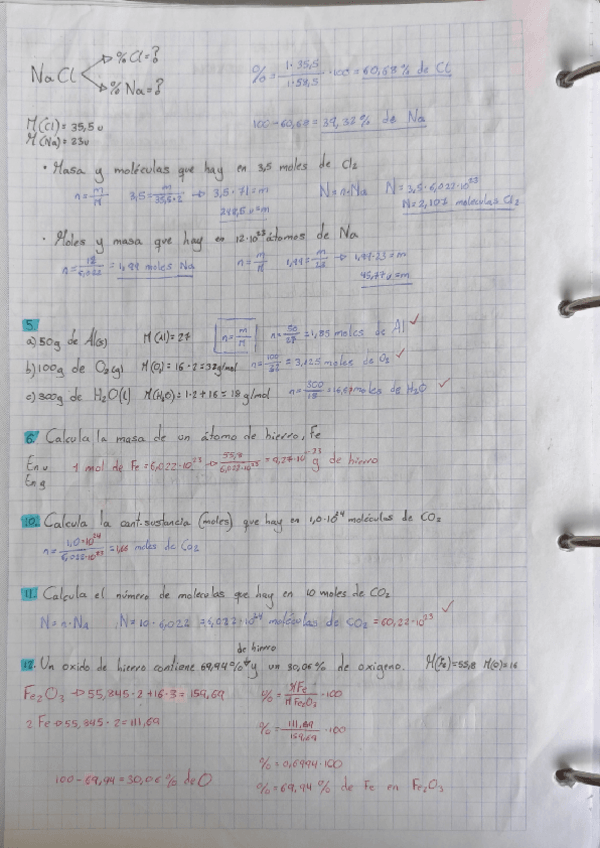 % Cl = ?
NaCl
% Na = ?
% = 1·35,5 / 1·58,5 · 100 = 60,68 % de Cl
100 - 60,68 = 39,32 % de Na
M(Cl) = 35,5 u
M(Na) = 23u
· Masa y moléculas que hay en 3,5 moles de Cl2
n = m/M 3,5 = m/35,5·2 → 3,5·71 = m
u = m
N = n·Na N = 3,5·6,022·10^23
N = 2,107 moléculas Cl2
· Moles y masa que hay en 12·10^23 átomos de Na
n = 12/6,022 = 1,99 moles Na n = m/M 1,99 = m/23 → 1,99·23 = m
45,77 u = m
5.
a) 50g de Al(s) M(Al) = 27 n = m/M n = 50/27 = 1,85 moles de Al ✓
b) 100g de O2(g) M(O2) = 16·2 = 32g/mol n = 100/32 = 3,125 moles de O2 ✓
c) 300g de H2O(l) M(H2O) = 1·2+16 = 18 g/mol n = 300/18 = 16,67 moles de H2O ✓
6. Calcula la masa de un átomo de hierro, Fe
En u 1 mol de Fe = 6,022·10^23 → 55,8 / 6,022·10^23 = 9,27·10^-23 g de hierro
En g
10. Calcula la cant. sustancia (moles) que hay en 1,0·10^24 moléculas de CO2
n = 1,0·10^24 / 6,022·10^23 = 1,66 moles de CO2
11. Calcula el número de moléculas que hay en 10 moles de CO2
N = n·NA N = 10·6,022 = 6,022·10^24 moléculas de CO2 = 60,22·10^23 ✓
de hierro
12. Un oxido de hierro contiene 69,94% y un 30,06% de oxigeno. M(Fe) = 55,8 M(O) = 16
Fe2O3 → 55,845·2+16·3 = 159,69
% = MFe / MFe2O3 · 100
2 Fe → 55,845·2 = 111,69
% = 111,69 / 159,69 · 100
% = 0,6994·100
100 - 69,94 = 30,06 % de O
% = 69,94 % de Fe en Fe2O3